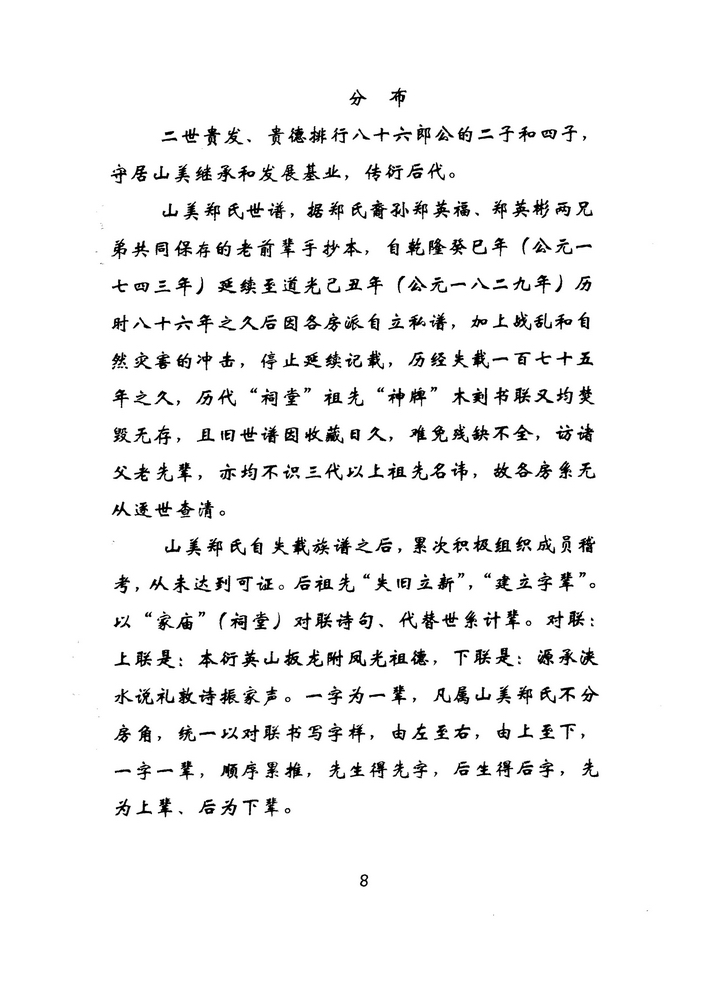 分 布
二世贵发、贵德排行八十六郎公的二子和四子，
守居山美继承和发展基业，传衍后代。
山美郑氏世谱，据郑氏裔孙郑英福、郑英彬两兄
弟共同保存的老前辈手抄本，自乾隆癸巳年（公元一
七四三年）延续至道光己丑年（公元一八二九年）历
时八十六年之久后因各房派自立私谱，加上战乱和自
然灾害的冲击，停止延续记载，历经失载一百七十五
年之久，历代“祠堂”祖先“神牌”木刻书联又均焚
毁无存，且旧世谱因收藏日久，难免残缺不全，访诸
父老先辈，亦均不识三代以上祖先名讳，故各房系无
从逐世查清。
山美郑氏自失载族谱之后，累次积极组织成员稽
考，从未达到可证。后祖先“失旧立新”，“建立字辈”。
以“家庙”（祠堂）对联诗句、代替世系计辈。对联：
上联是：本衍英山扳龙附凤光祖德，下联是：源承泱
水说礼敦诗振家声。一字为一辈，凡属山美郑氏不分
房角，统一以对联书写字样，由左至右，由上至下，
一字一辈，顺序累推，先生得先字，后生得后字，先
为上辈、后为下辈。
8